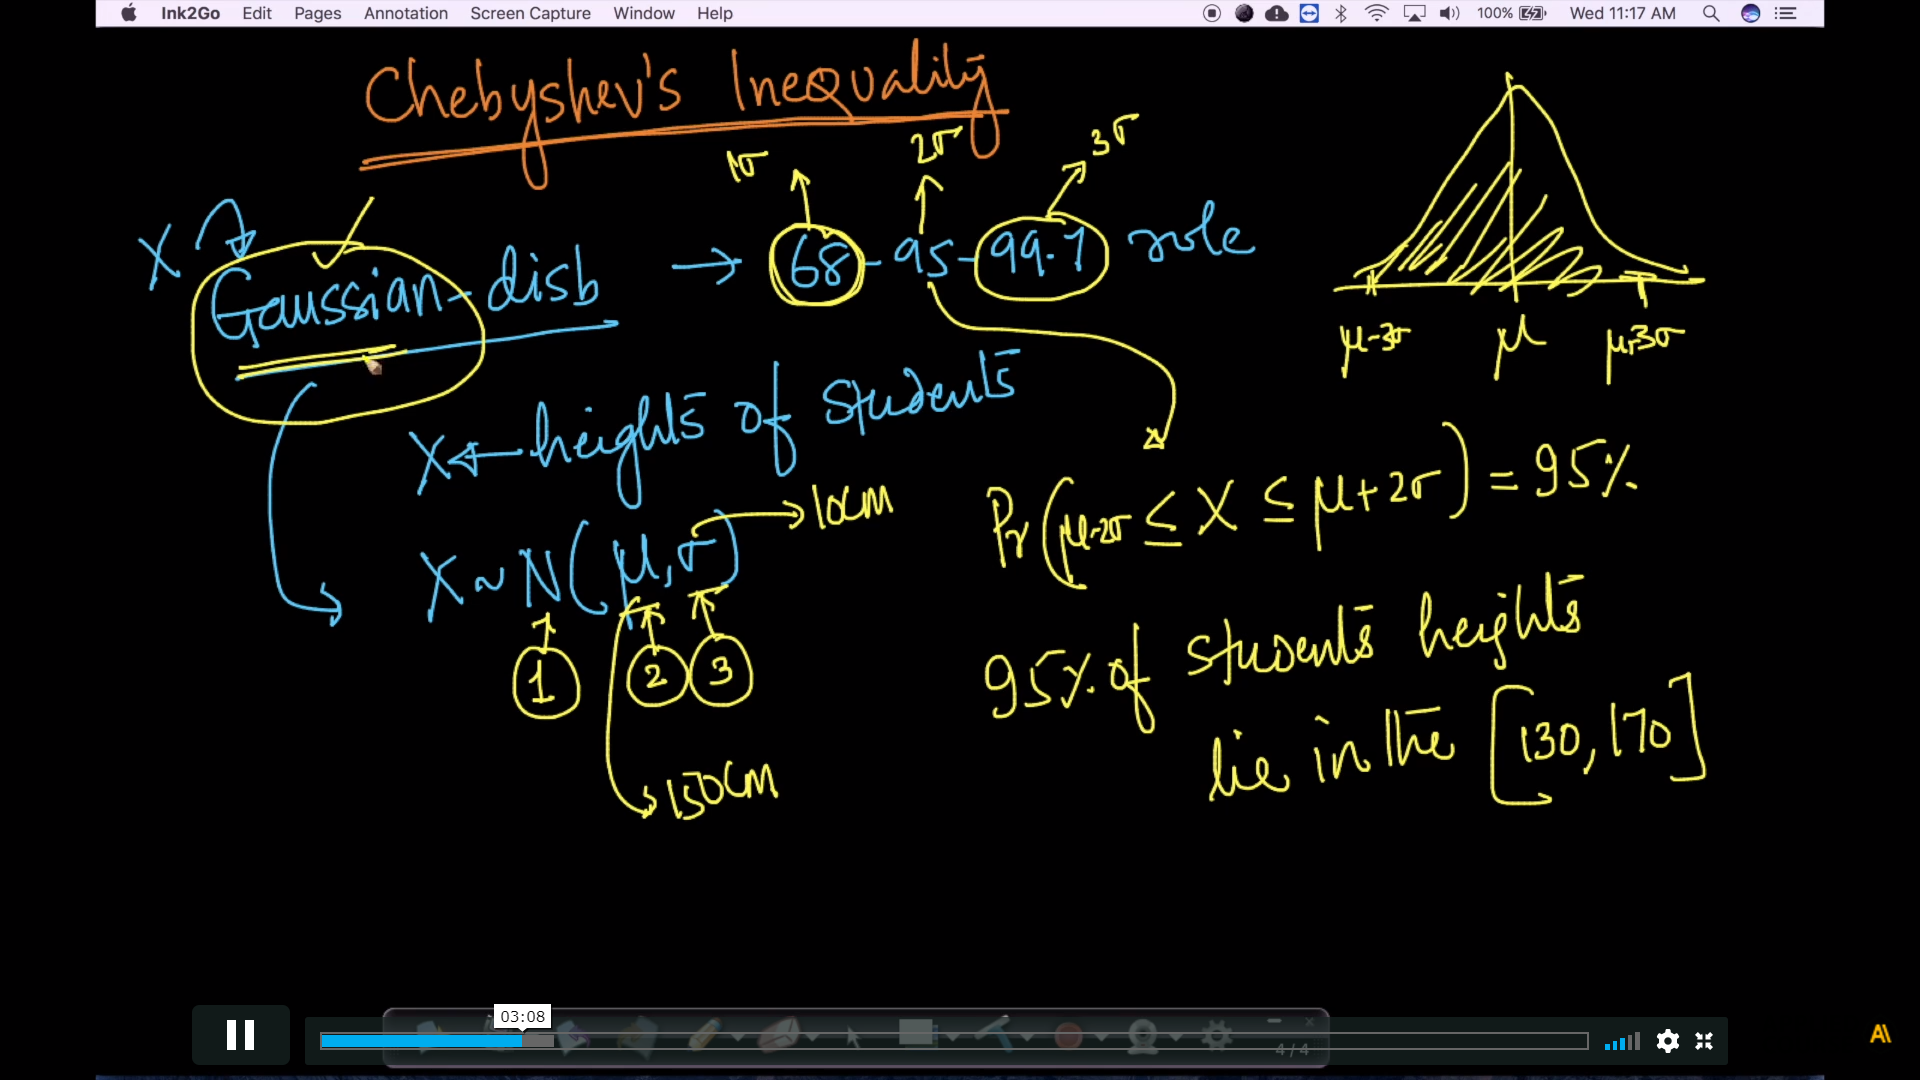 Ink2Go Edit Pages Annotation Screen Capture Window Help 100% Wed 11:17 AM
Chebyshev's Inequality
1σ 2σ 3σ
X
Gaussian-disb → 68-95-99.7 rule
μ-3σ μ μ+3σ
X ← heights of students
Pr(μ-2σ ≤ X ≤ μ+2σ) = 95%
X ~ N(μ,σ) → 10cm
1 2 3
→ 150cm
95% of students heights
lie in the [130, 170]
03:08
4 / 4